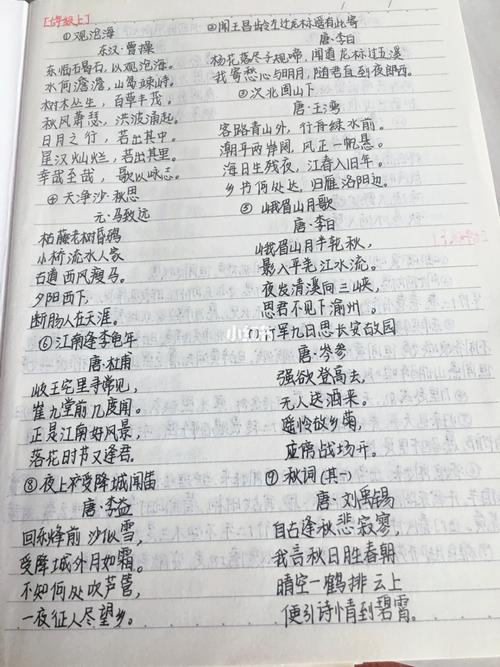 [七年级上]
①观沧海
东汉·曹操
东临碣石,以观沧海。
水何澹澹,山岛竦峙。
树木丛生,百草丰茂。
秋风萧瑟,洪波涌起。
日月之行,若出其中。
星汉灿烂,若出其里。
幸哉至哉,歌以咏志。
④天净沙·秋思
元·马致远
枯藤老树昏鸦
小桥流水人家
古道西风瘦马。
夕阳西下,
断肠人在天涯。
⑥江南逢李龟年
唐·杜甫
岐王宅里寻常见,
崔九堂前几度闻。
正是江南好风景,
落花时节又逢君。
⑧夜上受降城闻笛
唐·李益
回乐烽前沙似雪,
受降城外月如霜。
不知何处吹芦管,
一夜征人尽望乡。
②闻王昌龄左迁龙标遥有此寄
唐·李白
杨花落尽子规啼,闻道龙标过五溪
我寄愁心与明月,随君直到夜郎西。
次北固山下
唐·王湾
客路青山外,行舟绿水前。
潮平两岸阔,风正一帆悬。
海日生残夜,江春入旧年。
乡书何处达,归雁洛阳边。
⑤峨眉山月歌
唐·李白
峨眉山月半轮秋,
影入平羌江水流。
夜发清溪向三峡,
思君不见下渝州。
行军九日思长安故园
唐·岑参
强欲登高去,
无人送酒来。
遥怜故乡菊,
应傍战场开。
秋词(其一)
唐·刘禹锡
自古逢秋悲寂寥,
我言秋日胜春朝
晴空一鹤排云上
便引诗情到碧霄。
小红书